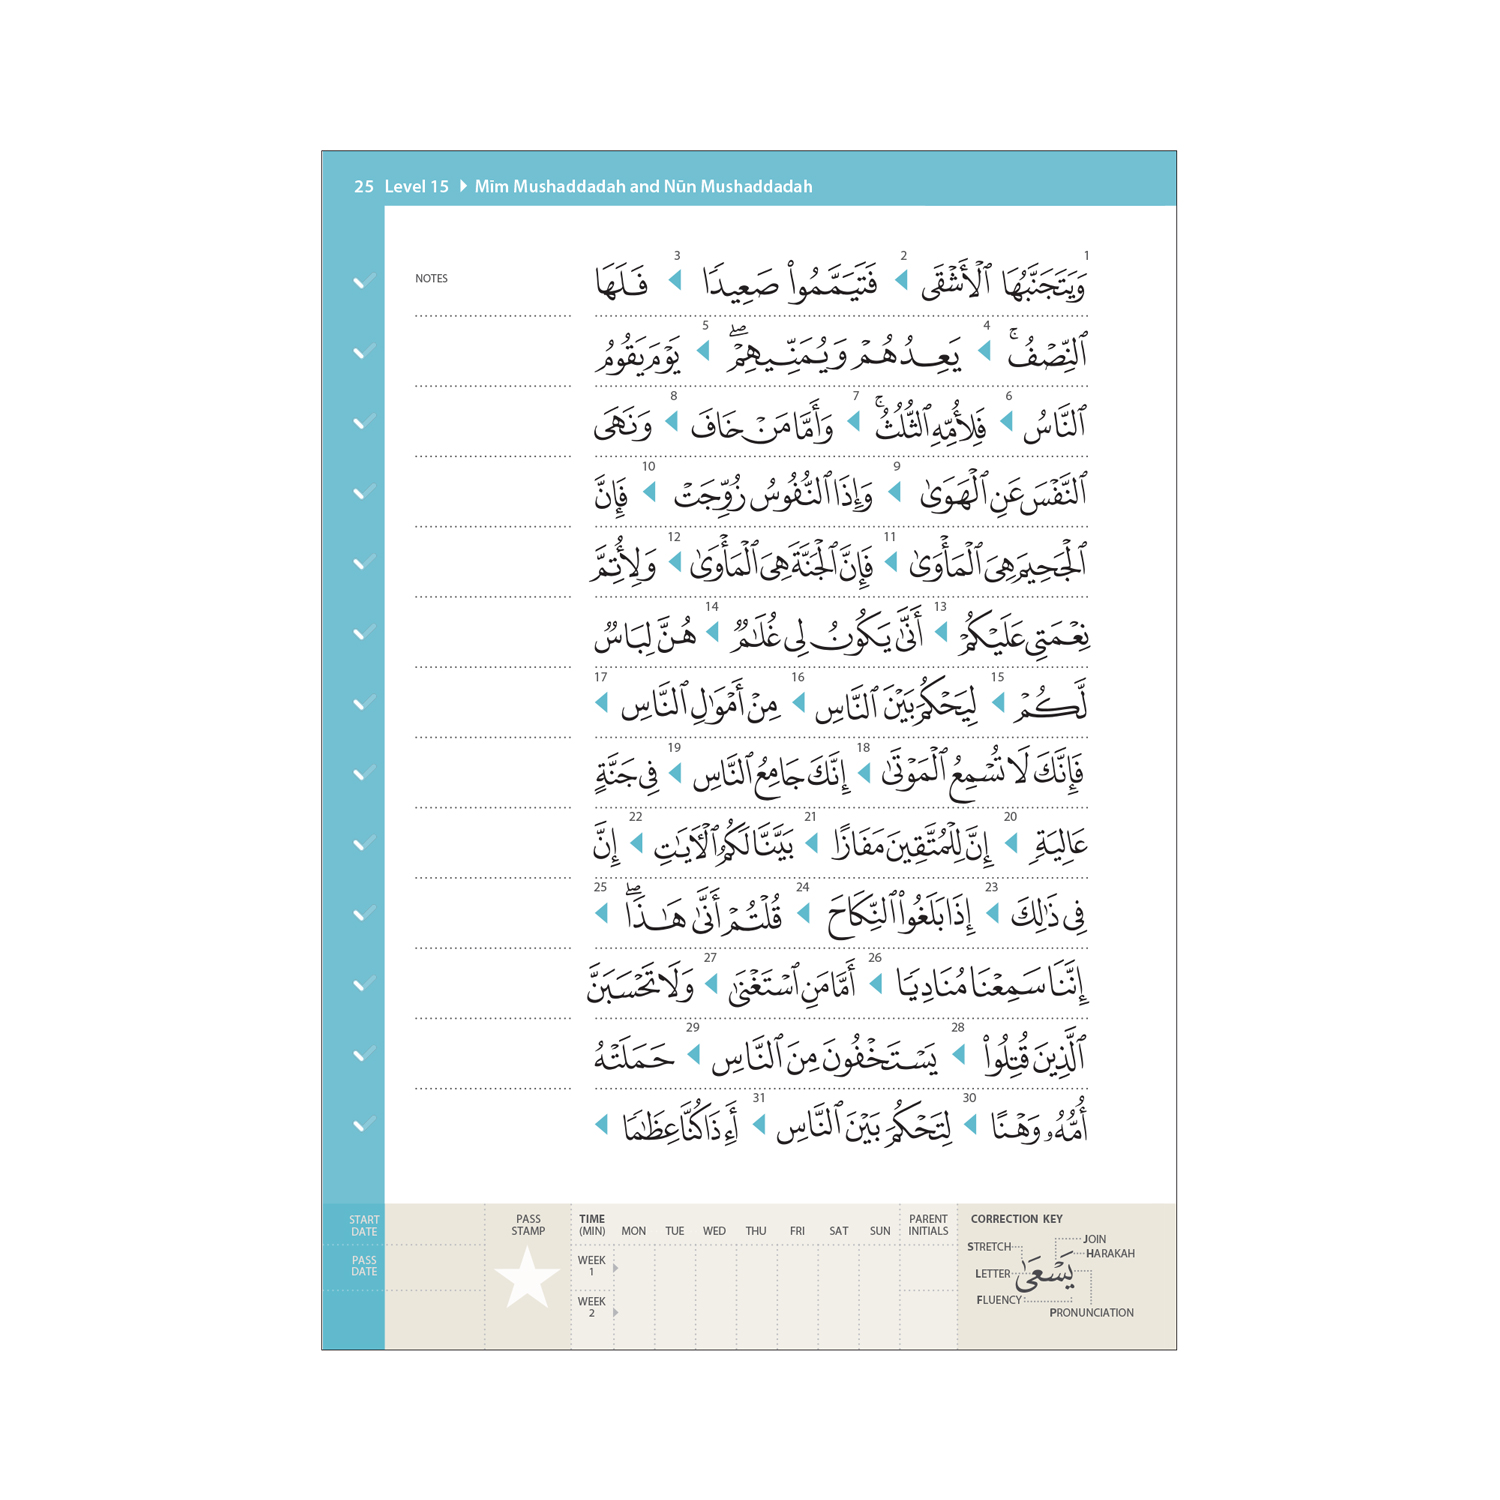 25 Level 15 Mīm Mushaddadah and Nūn Mushaddadah
NOTES
1 2 3
وَيَتَجَنَّبُهَا ٱلْأَشْقَى ◀ فَتَيَمَّمُوا۟ صَعِيدًا ◀ فَلَهَا
4 5
ٱلنِّصْفُ ۚ ◀ يَعِدُهُمْ وَيُمَنِّيهِمْ ۖ ◀ يَوْمَ يَقُومُ
6 7 8
ٱلنَّاسُ ◀ فَلِأُمِّهِ ٱلثُّلُثُ ۚ ◀ وَأَمَّا مَنْ خَافَ ◀ وَنَهَى
9 10
ٱلنَّفْسَ عَنِ ٱلْهَوَىٰ ◀ وَإِذَا ٱلنُّفُوسُ زُوِّجَتْ ◀ فَإِنَّ
11 12
ٱلْجَحِيمَ هِىَ ٱلْمَأْوَىٰ ◀ فَإِنَّ ٱلْجَنَّةَ هِىَ ٱلْمَأْوَىٰ ◀ وَلِأُتِمَّ
13 14
نِعْمَتِى عَلَيْكُمْ ◀ أَنَّىٰ يَكُونُ لِى غُلَٰمٌ ◀ هُنَّ لِبَاسٌ
15 16 17
لَّكُمْ ◀ لِيَحْكُمَ بَيْنَ ٱلنَّاسِ ◀ مِنْ أَمْوَٰلِ ٱلنَّاسِ ◀
18 19
فَإِنَّكَ لَا تُسْمِعُ ٱلْمَوْتَىٰ ◀ إِنَّكَ جَامِعُ ٱلنَّاسِ ◀ فِى جَنَّةٍ
20 21 22
عَالِيَةٍ ◀ إِنَّ لِلْمُتَّقِينَ مَفَازًا ◀ بَيَّنَّا لَكُمُ ٱلْءَايَٰتِ ◀ إِنَّ
23 24 25
فِى ذَٰلِكَ ◀ إِذَا بَلَغُوا۟ ٱلنِّكَاحَ ◀ قُلْتُمْ أَنَّىٰ هَٰذَا ۖ ◀
26 27
إِنَّنَا سَمِعْنَا مُنَادِيًا ◀ أَمَّا مَنِ ٱسْتَغْنَىٰ ◀ وَلَا تَحْسَبَنَّ
28 29
ٱلَّذِينَ قُتِلُوا۟ ◀ يَسْتَخْفُونَ مِنَ ٱلنَّاسِ ◀ حَمَلَتْهُ
30 31
أُمُّهُۥ وَهْنًا ◀ لِتَحْكُمَ بَيْنَ ٱلنَّاسِ ◀ أَءِذَا كُنَّا عِظَٰمًا ◀
START DATE
PASS DATE
PASS STAMP
TIME (MIN) MON TUE WED THU FRI SAT SUN
WEEK 1
WEEK 2
PARENT INITIALS
CORRECTION KEY
JOIN
STRETCH
HARAKAH
LETTER
يَسْعَىٰ
FLUENCY
PRONUNCIATION